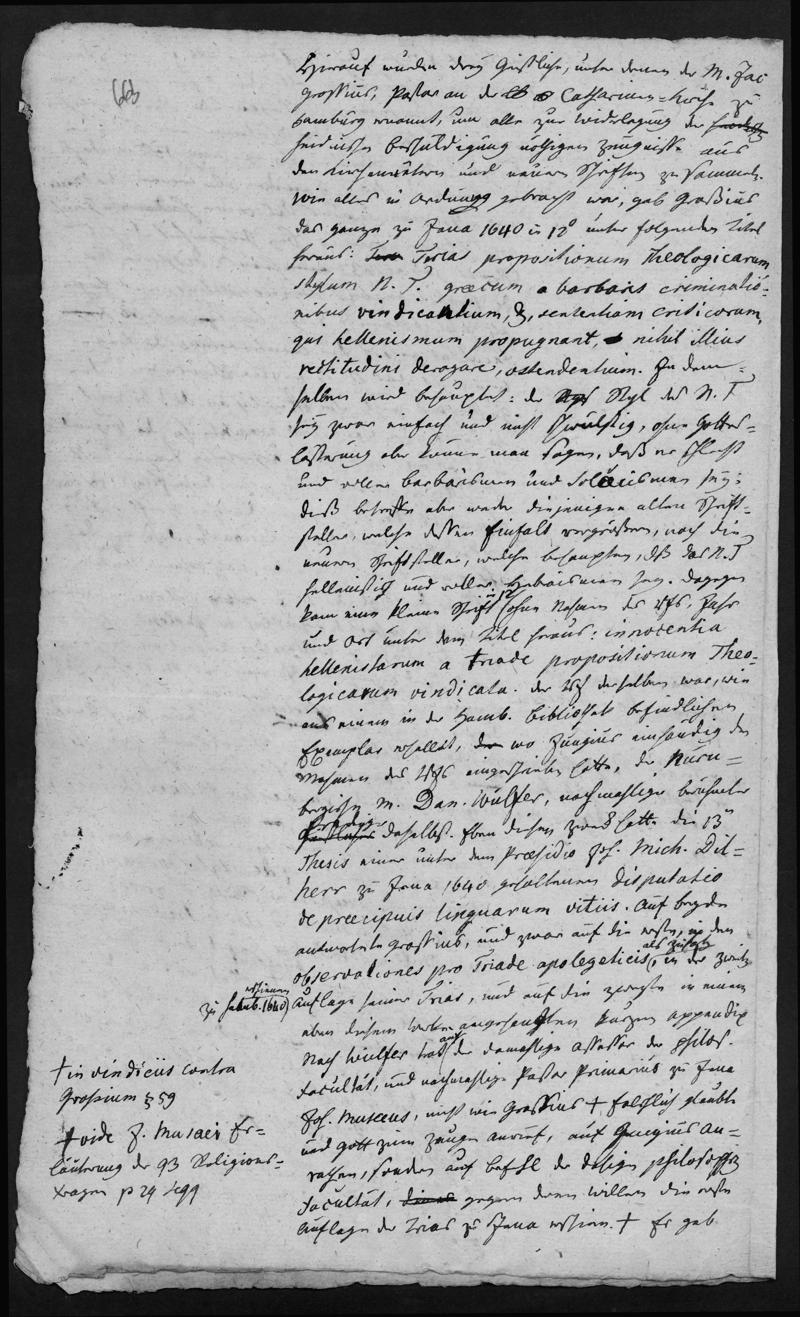 66
Hierauf wurden drey Geistliche, unter denen der M. Jac
Grossius, Pastor an der Catharinen-Kirche zu
Hamburg ernannt, um alle zur Widerlegung der
Beschuldigung nöthigen Zeugnisse aus
den Kirchenvätern und neuern Schriften zu sammeln.
Wie alles in Ordnung gebracht war, gab Grossius
das ganze zu Jena 1640 in 12° unter folgenden Titel
heraus: Trias propositionum Theologicarum
stylum N. T. græcum a barbaris criminatio-
nibus vindicantium, &, sententiam criticorum,
qui hellenismum propugnant, nihil illius
rectitudini derogare, ostendentium. In dem-
selben wird behauptet: der Styl des N. T
sey zwar einfach und nicht schwülstig, ohne Gottes-
lästerung aber könne man sagen, daß er schlecht
und voller Barbarismen und Solöcismen sey;
dieß betreffe aber weder diejenigen alten Schrift-
steller, welche dessen Einfalt vergrößern, noch die
neuern Schriftsteller, welche behaupten, daß das N. T
hellenistisch und voller Hebraismen sey. Dagegen
kam eine kleine Schrift ohne Nahmen des Vfs, Jahr
und Ort unter dem Titel heraus: innocentia
hellenistarum a triade propositionum Theo-
logicarum vindicata. Der Vf derselben war, wie
aus einem in der Hamb. Bibliothek befindlichen
Exemplar erhellet, wo Jungius eigenhändig den
Nahmen des Vfs eingeschrieben hatte, der Nürn-
bergische M. Dan. Wülfer, nachmahliger berühmter
Prediger
daselbst. Eben diesen Zweck hatte die 13te
Thesis einer unter dem Præsidio Joh. Mich. Dil-
herr zu Jena 1640 gehaltenen disputatio
de præcipuis linguarum vitiis. Auf beyde
antwortete Grossius, und zwar auf die erste, in den
observationes pro Triade apologeticis, als Zusatz in der zweiten
erschienen
zu Hamb. 1640) Auflage seiner Trias, und auf die zweyte in einem
eben diesem Werke angehängten kurzen appendix
Nach Wülfer trat auf der damahlige Assessor der philos.
Facultät, und nachmahlige Pastor Primarius zu Jena
Joh. Musaeus, nicht wie Grossius + fälschlich glaubte
und Gott zum Zeugen anrief, auf Jungius An-
rathen, sondern auf Befehl der dortigen philosoph
Facultät, gegen deren Willen die erste
Auflage der Trias zu Jena erschien. + Er gab
+ in vindiciis contra
Grossium § 59
+ vide J. Musaei Er-
läuterung der 93 Religions-
Fragen p 29 sqq